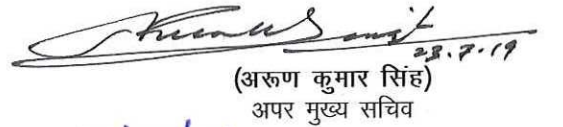 23.7.19
(अरूण कुमार सिंह)
अपर मुख्य सचिव